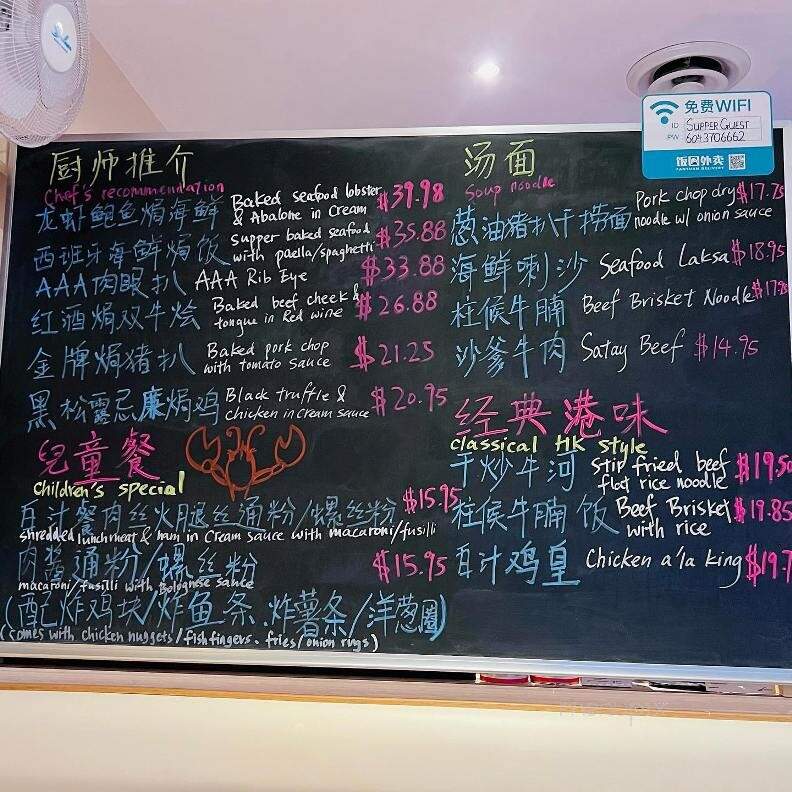 厨师推介
Chef's recommendation
龙虾鲍鱼焗海鲜 Baked seafood lobster & Abalone in Cream $39.98
西班牙海鲜焗饭 Supper baked seafood with paella/spaghetti $35.88
AAA肉眼扒 AAA Rib Eye $33.88
红酒焗双牛烩 Baked beef cheek & tongue in Red wine $26.88
金牌焗猪扒 Baked pork chop with tomato sauce $21.25
黑松露忌廉焗鸡 Black truffle & chicken in cream sauce $20.95
兒童餐
children's special
白汁餐肉丝火腿丝通粉/螺丝粉 $15.95
shredded lunchmeat & ham in Cream sauce with macaroni/fusilli
肉酱通粉/螺丝粉 $15.95
macaroni/fusilli with Bolognese sauce
(配炸鸡块/炸鱼条、炸薯条/洋葱圈)
(comes with chicken nuggets/fishfingers. fries/onion rings)
汤面
Soup noodle
葱油猪扒干捞面 Pork chop dry noodle w/ onion sauce $17.75
海鲜喇沙 Seafood Laksa $18.95
柱候牛腩 Beef Brisket Noodle
沙爹牛肉 Satay Beef $14.95
经典港味
classical HK style
干炒牛河 Stir fried beef flat rice noodle $19.50
柱候牛腩饭 Beef Brisket with rice $19.85
白汁鸡皇 Chicken a'la king $19.7
免费WIFI
ID SUPPER GUEST
PW 6043706662
饭团外卖
FANTUAN DELIVERY